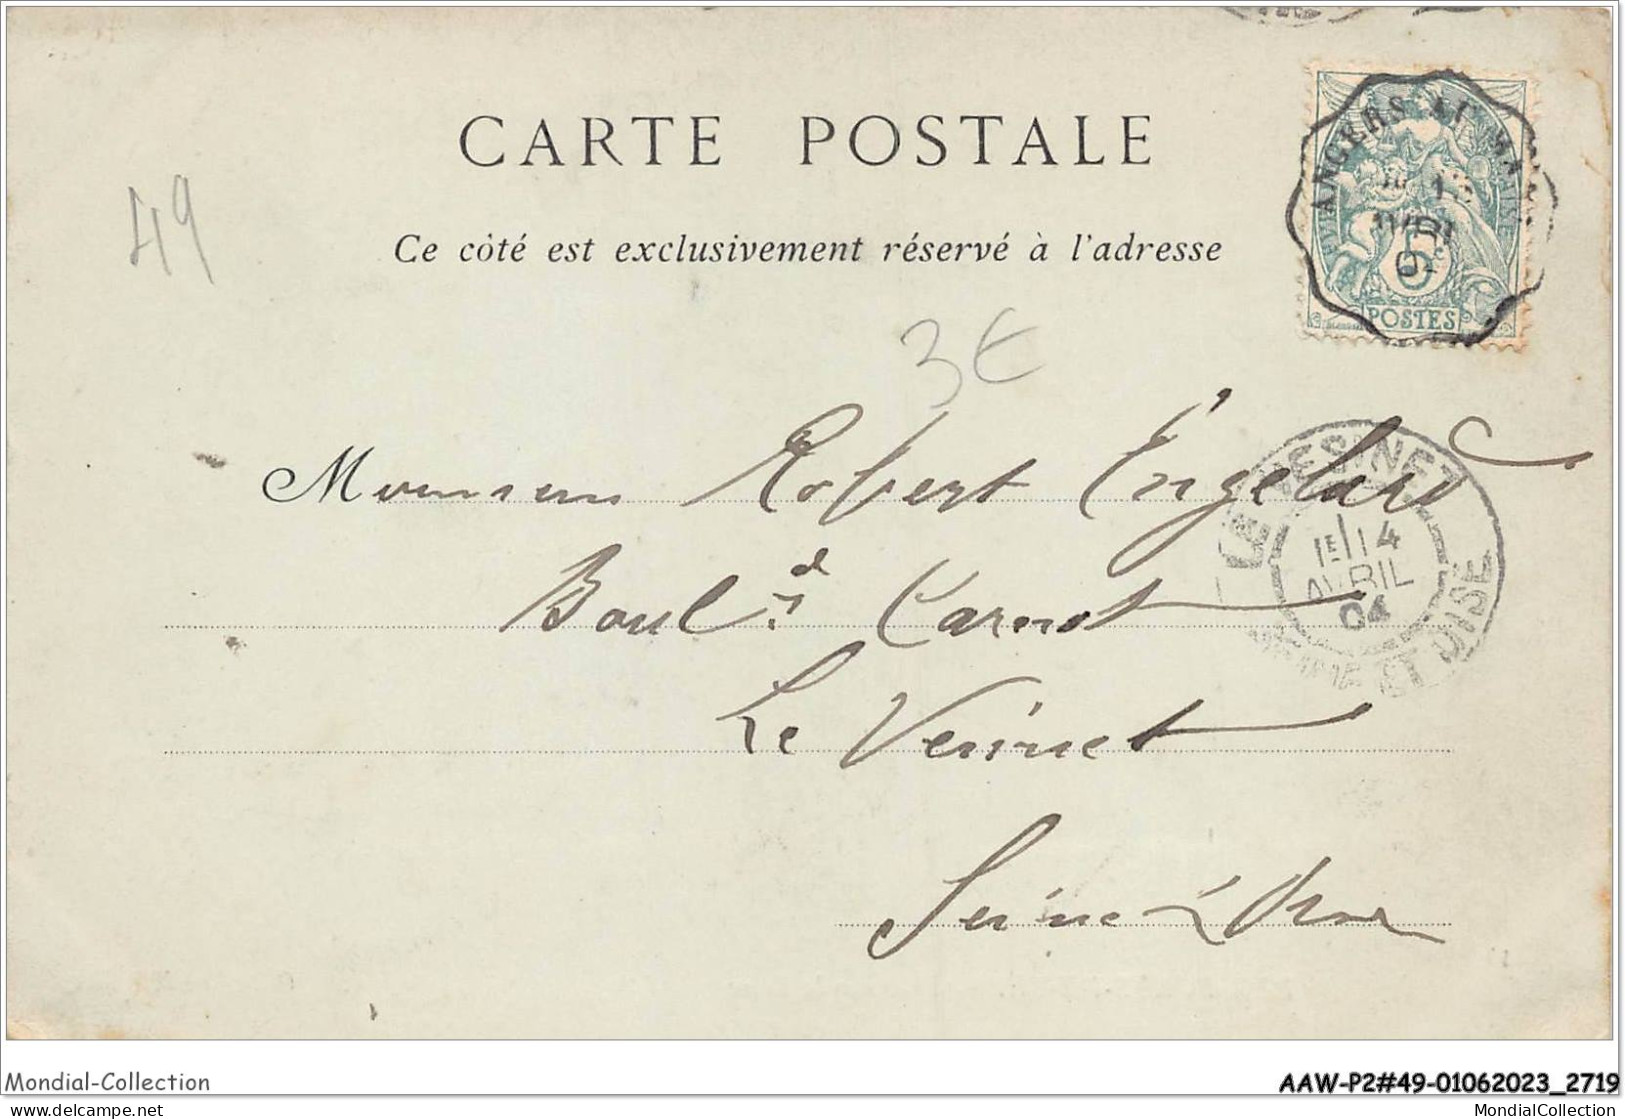 CARTE POSTALE
49
Ce côté est exclusivement réservé à l'adresse
ANGERS AU MA
13
AVRIL
5
POSTES
3€
Monsieur Robert Engelard
Boul.d Carnot
Le Vésinet
Seine &
LE VESINET
1E 14
AVRIL
04
SEINE ET OISE
Mondial-Collection
AAW-P2#49-01062023_2719
www.delcampe.net
MondialCollection